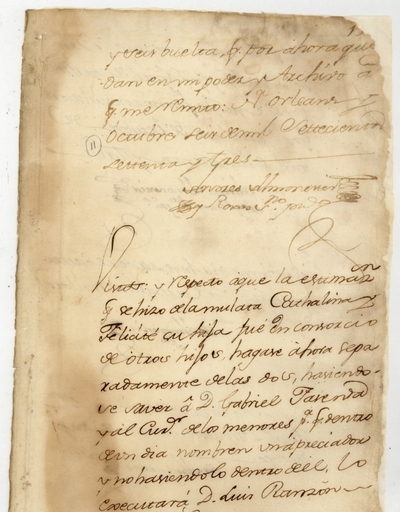 y seis buelta, q.e por ahora que
dan en mi poder y Archivo â
q.e me remito: N. Orleans y
Octubre seis de mil Settecientos
settenta y tres
11
Andres Almonester
y Roxas S.no pu.co
Vistos: y respecto âque la estimaz.on
q.e se hizo de la mulata Cathalina y
Felicité su hija fué en consorcio
de otros hijos, hagase âhora sepa
radamente de las dos, haviendo-
se saver â D. Gabriel
y al Cur.or de los menores p.a q.e dentro
de un dia nombren un âpreciador
y no haviendolo dentro de el, lo
executará D. Luis Ranzon